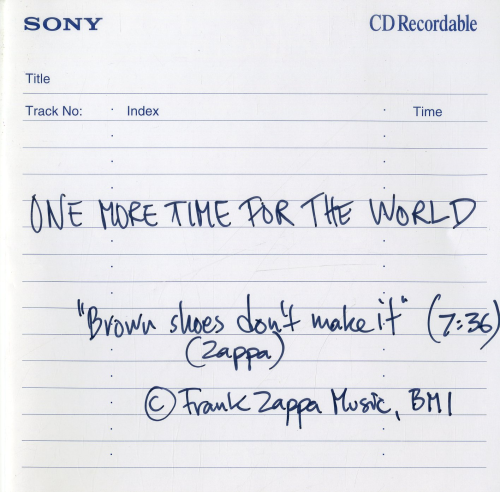 SONY CD Recordable
Title
Track No: Index Time
ONE MORE TIME FOR THE WORLD
"Brown shoes don't make it" (7:36)
(Zappa)
© Frank Zappa Music, BMI